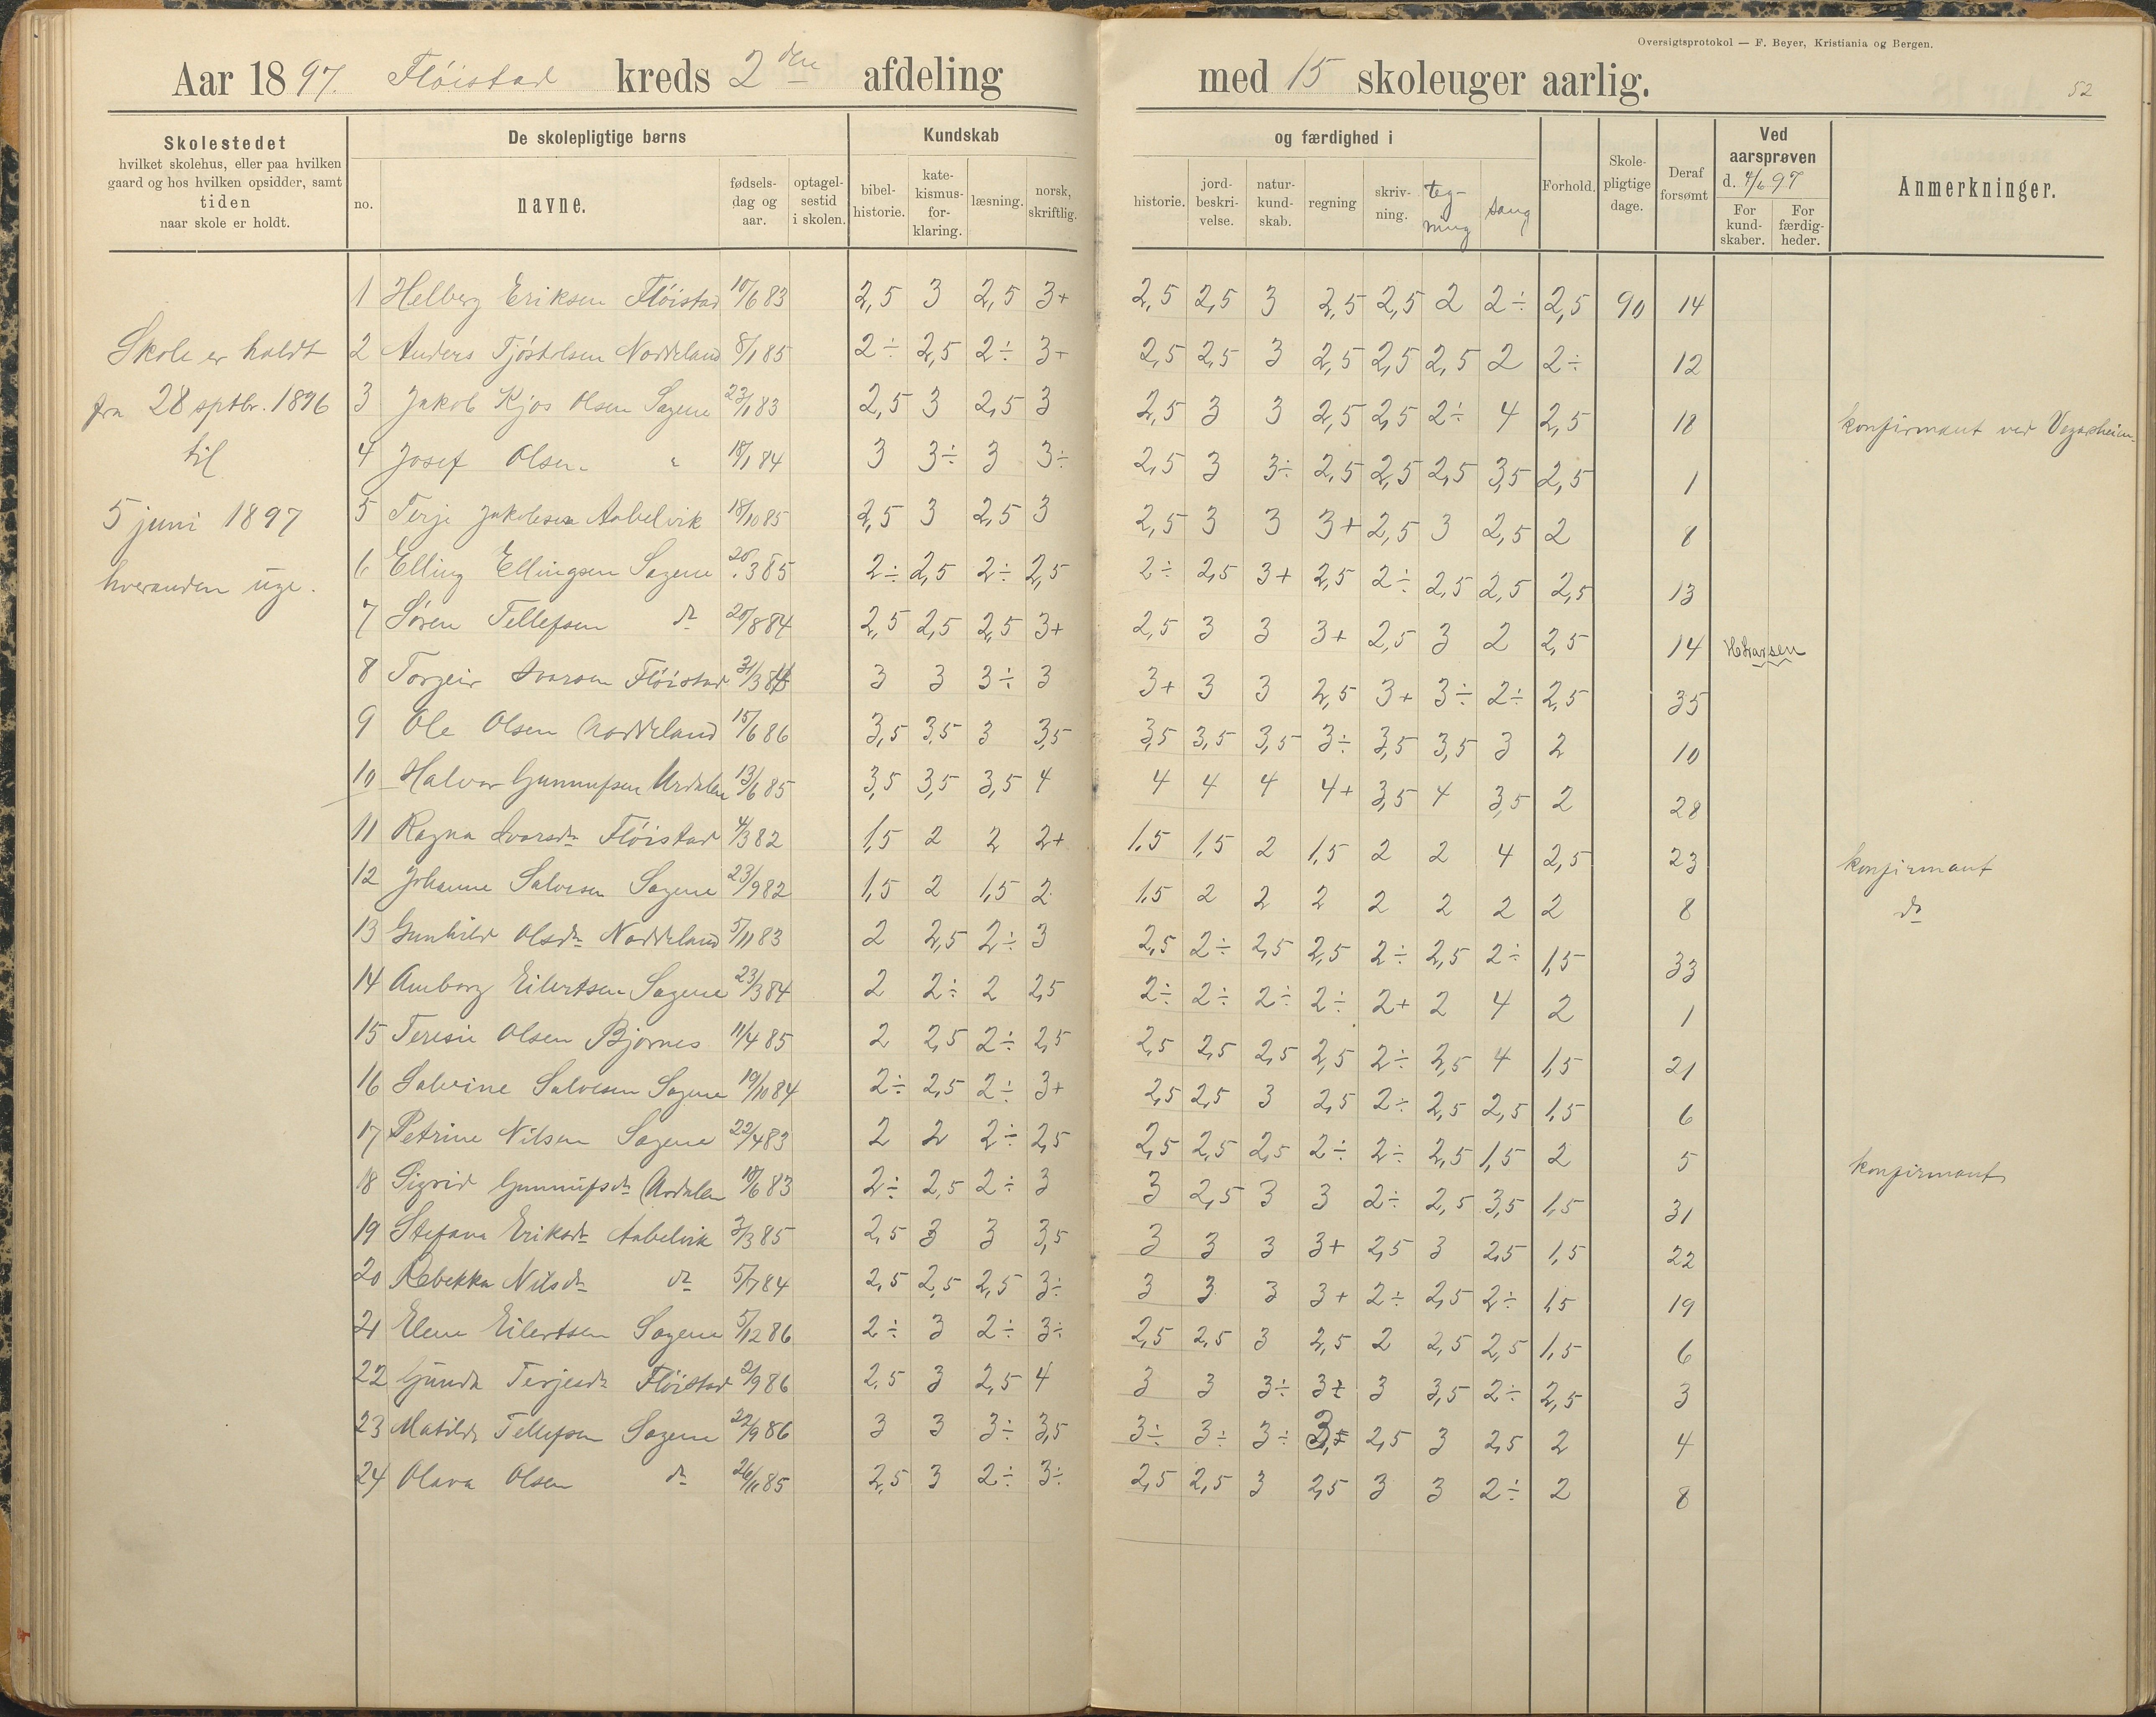 Oversigtsprotokol — F. Beyer, Kristiania og Bergen.
Aar 1897. Flöistad kreds 2den afdeling med 15 skoleuger aarlig.
52
Skolestedet
hvilket skolehus, eller paa hvilken
gaard og hos hvilken opsidder, samt
tiden
naar skole er holdt.
De skolepligtige børns
no.
navne.
fødsels-
dag og
aar.
optagel-
sestid
i skolen.
Kundskab
bibel-
historie.
kate-
kismus-
for-
klaring.
læsning.
norsk,
skriftlig.
og færdighed i
historie.
jord-
beskri-
velse.
natur-
kund-
skab.
regning
skriv-
ning.
teg-
ning
sang
Forhold.
Skole-
pligtige
dage.
Deraf
forsømt
Ved
aarsprøven
d. 4/6 97
For
kund-
skaber.
For
færdig-
heder.
Anmerkninger.
Skole er holdt
fra 28 sptbr. 1896
til
5 juni 1897
hveranden uge.
1 Helberg Eriksen Flöistad 10/6 83 2,5 3 2,5 3+ 2,5 2,5 3 2,5 2,5 2 2÷ 2,5 90 14
2 Anders Tjöstolsen Noddeland 8/1 85 2÷ 2,5 2÷ 3+ 2,5 2,5 3 2,5 2,5 2,5 2 2÷ 12
3 Jakob Kjos Olsen Sagene 23/1 83 2,5 3 2,5 3 2,5 3 3 2,5 2,5 2÷ 4 2,5 18 konfirmant ved Vegaasheim
4 Josef Olsen " 18/1 84 3 3÷ 3 3÷ 2,5 3 3÷ 2,5 2,5 2,5 3,5 2,5 1
5 Terje Jakobsen Aabelvik 18/10 85 2,5 3 2,5 3 2,5 3 3 3+ 2,5 3 2,5 2 8
6 Elling Ellingsen Sagene 20/3 85 2÷ 2,5 2÷ 2,5 2÷ 2,5 3+ 2,5 2÷ 2,5 2,5 2,5 13
7 Sören Tellefsen do 20/8 84 2,5 2,5 2,5 3+ 2,5 3 3 3+ 2,5 3 2 2,5 14 HLarsen
8 Torgeir Ivarsen Flöistad 31/3 3 3 3÷ 3 3+ 3 3 2,5 3+ 3÷ 2÷ 2,5 35
9 Ole Olsen Noddeland 15/6 86 3,5 3,5 3 3,5 3,5 3,5 3,5 3÷ 3,5 3,5 3 2 10
10 Halvor Gunnufsen Urdalen 13/6 85 3,5 3,5 3,5 4 4 4 4 4+ 3,5 4 3,5 2 28
11 Ragna Ivarsdr Flöistad 4/3 82 1,5 2 2 2+ 1,5 1,5 2 1,5 2 2 4 2,5 23 konfirmant
12 Johanne Salvesen Sagene 23/9 82 1,5 2 1,5 2 1,5 2 2 2 2 2 2 2 8 do
13 Gunhild Olsdr Noddeland 5/11 83 2 2,5 2÷ 3 2,5 2÷ 2,5 2,5 2÷ 2,5 2÷ 1,5 33
14 Amborg Eilertsen Sagene 23/3 84 2 2÷ 2 2,5 2÷ 2÷ 2÷ 2÷ 2+ 2 4 2 1
15 Teresie Olsen Bjornes 11/4 85 2 2,5 2÷ 2,5 2,5 2,5 2,5 2,5 2÷ 2,5 4 1,5 21
16 Salvine Salvesen Sagene 19/10 84 2÷ 2,5 2÷ 3+ 2,5 2,5 3 2,5 2÷ 2,5 2,5 1,5 6
17 Petrine Nilsen Sagene 22/4 83 2 2 2÷ 2,5 2,5 2,5 2,5 2÷ 2÷ 2,5 1,5 2 5
18 Sigrid Gunnufsdr Urdalen 18/6 83 2÷ 2,5 2÷ 3 3 2,5 3 3 2÷ 2,5 3,5 1,5 31 konfirmant
19 Stefana Eriksdr Aabelvik 3/3 85 2,5 3 3 3,5 3 3 3 3+ 2,5 3 2,5 1,5 22
20 Rebekka Nilsdr do 5/7 84 2,5 2,5 2,5 3÷ 3 3 3 3+ 2÷ 2,5 2÷ 1,5 19
21 Elene Eilertsen Sagene 5/12 86 2÷ 3 2÷ 3÷ 2,5 2,5 3 2,5 2 2,5 2,5 1,5 6
22 Gunda Terjesdr Flöistad 2/9 86 2,5 3 2,5 4 3 3 3÷ 3± 3 3,5 2÷ 2,5 3
23 Matilde Tellefsen Sagene 22/9 86 3 3 3÷ 3,5 3÷ 3÷ 3÷ 2,5 3 2,5 2 4
24 Olava Olsen do 26/11 85 2,5 3 2÷ 3÷ 2,5 2,5 3 2,5 3 3 2÷ 2 8